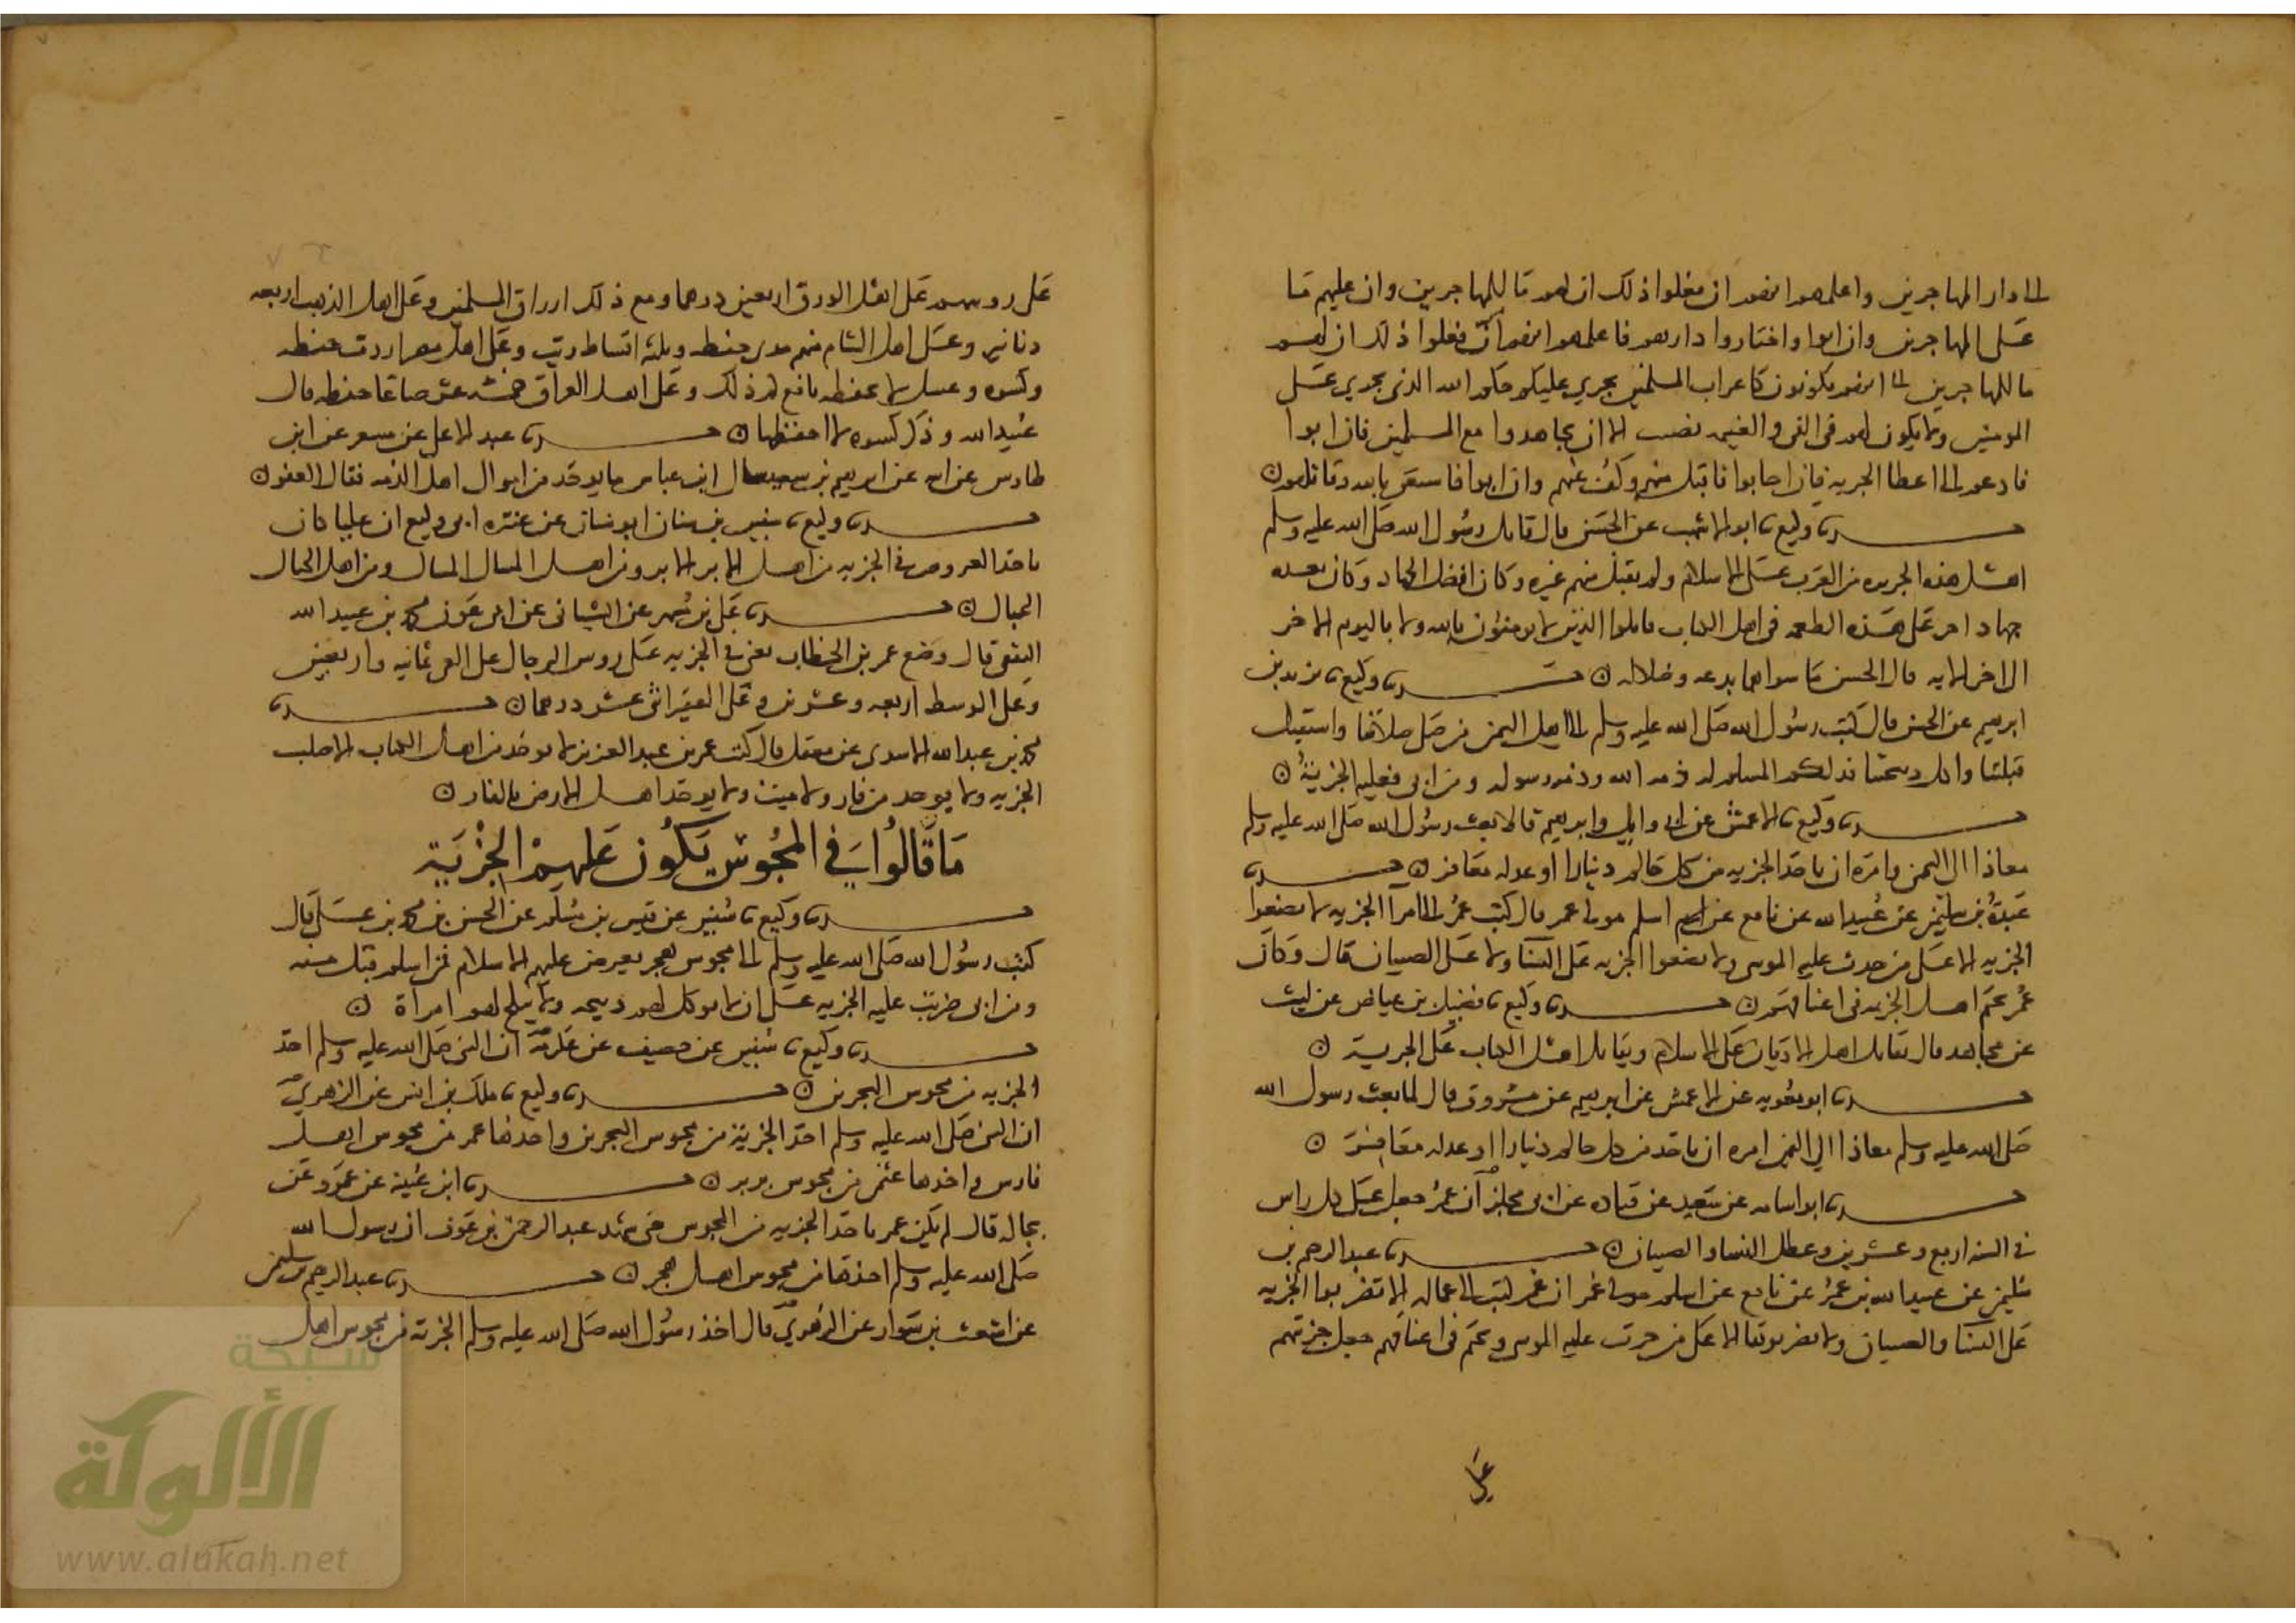 الى دار المهاجرين واعلمهم انهم ان فعلوا ذلك ان لهم ما للمهاجرين وان عليهم ما
على المهاجرين وان ابوا واختاروا دارهم فاعلمهم انهم ان فعلوا ذلك ان لهم
ما للمهاجرين الا انهم يكونون كاعراب المسلمين يجري عليهم حكم الله الذي يجري على
المومنين ولا يكون لهم في الفي والغنيمه نصيب الا ان يجاهدوا مع المسلمين فان ابوا
فادعهم الى اعطا الجزيه فان اجابوا فاقبل منهم وكف عنهم وان ابوا فاستعن بالله وقاتلهم ن
نا وكيع نا ابو الاشهب عن الحسن قال قاتل رسول الله صلى الله عليه وسلم
اهل هذه الجزيره من العرب على الاسلام ولم يقبل منهم غيره وكان افضل الجهاد وكان بعده
جهاد اخر على هذه الطعمه في اهل الكتاب قاتلوا الذين لا يومنون بالله ولا باليوم الاخر
الى اخر الايه قال الحسن ما سواهما بدعه وضلاله ن نا وكيع نا يزيد بن
ابرهيم عن الحسن قال كتب رسول الله صلى الله عليه وسلم الى اهل اليمن من صلى صلاتنا واستقبل
قبلتنا واكل ذبيحتنا فذلكم المسلم له ذمه الله وذمه رسوله ومن ابى فعليه الجزية ن
نا وكيع نا الاعمش عن ابي وايل وابرهيم قالا بعث رسول الله صلى الله عليه وسلم
معاذا الى اليمن وامره ان ياخذ الجزيه من كل حالم دينارا او عدله معافر ن نا
عبدة بن سليمن عن عبيد الله عن نافع عن اسلم مولى عمر قال كتب عمر الى امرا الجزيه لا تضعوا
الجزيه الا على من جرت عليه الموسى ولا تضعوا الجزيه على النسا ولا على الصبيان قال وكان
عمر يختم اهل الجزيه في اعناقهم ن نا وكيع نا فضيل بن عياض عن ليث
عن مجاهد قال يقاتل اهل الاديان على الاسلام ويقاتل اهل الكتاب على الجزية ن
نا ابو معويه عن الاعمش عن ابرهيم عن مسروق قال لما بعث رسول الله
صلى الله عليه وسلم معاذا الى اليمن امره ان ياخذ من كل حالم دينارا او عدله معافر ن
نا ابو اسامه عن سعيد عن قتاده عن ابي مجلز ان عمر جعل على كل راس
في السنه اربع وعشرين وعطل النسا والصبيان ن نا عبد الرحيم بن
سليمن عن عبيد الله بن عمر عن نافع عن اسلم مولى عمر ان عمر كتب الى عماله الا تضربوا الجزيه
على النسا والصبيان ولا تضربوها الا على من جرت عليه الموسى ويختم في اعناقهم جعل جزيتهم
على
على روسهم على اهل الورق اربعين درهما ومع ذلك ارزاق المسلمين وعلى اهل الذهب اربعه
دنانير وعلى اهل الشام منهم مدي حنطه وثلثه اقساط زيت وعلى اهل مصر اردب حنطه
وكسوه وعسل لا يحفظه نافع كم ذلك وعلى اهل العراق خمسه عشر صاعا حنطه قال
عبيد الله وذكر كسوه لا احفظها ن نا عبد الاعلى عن معمر عن ابن
طاوس عن ابيه عن ابرهيم بن سعد سال ابن عباس ما يوخذ من اموال اهل الذمه فقال العفو ن
نا وكيع نا سفين بن سنان ابو سنان عن عنتره ابي وكيع ان عليا كان
ياخذ العروض في الجزيه من اهل الابر الابر ومن اهل المسال المسال ومن اهل الحبال
الحبال ن نا علي بن مسهر عن الشيباني عن ابي عون محمد بن عبيد الله
الثقفي قال وضع عمر بن الخطاب يعني في الجزيه على روس الرجال على الغني ثمانيه واربعين
وعلى الوسط اربعه وعشرين وعلى الفقير اثنى عشر درهما ن نا
محمد بن عبد الله الاسدي عن معقل قال كتب عمر بن عبد العزيز لا يوخذ من اهل الكتاب الا صلب
الجزيه ولا يوخذ من فار ولا ميت ولا يوخذ اهل الارض بالفار ن
مَا قَالُوا في المجُوسِ يَكُون عَليهِمْ الجِزْيَة
نا وكيع نا سفين عن قيس بن مسلم عن الحسن بن محمد بن علي قال
كتب رسول الله صلى الله عليه وسلم الى مجوس هجر يعرض عليهم الاسلام فمن اسلم قبل منه
ومن ابى ضربت عليه الجزيه على ان لا توكل لهم ذبيحه ولا ينكح لهم امراة ن
نا وكيع نا سفين عن خصيف عن عكرمة ان النبي صلى الله عليه وسلم اخذ
الجزيه من مجوس البحرين ن نا وكيع نا ملك بن انس عن الزهري
ان النبي صلى الله عليه وسلم اخذ الجزية من مجوس البحرين واخذها عمر من مجوس اهل
فارس واخذها عثمن من مجوس بربر ن نا ابن عيينة عن عمرو عن
بجاله قال لم يكن عمر ياخذ الجزيه من المجوس حتى شهد عبد الرحمن بن عوف ان رسول الله
صلى الله عليه وسلم اخذها من مجوس اهل هجر ن نا عبد الرحيم بن سليمن
عن اشعث بن سوار عن الزهري قال اخذ رسول الله صلى الله عليه وسلم الجزية من مجوس اهل
شبكة
الألوكة
www.alukah.net